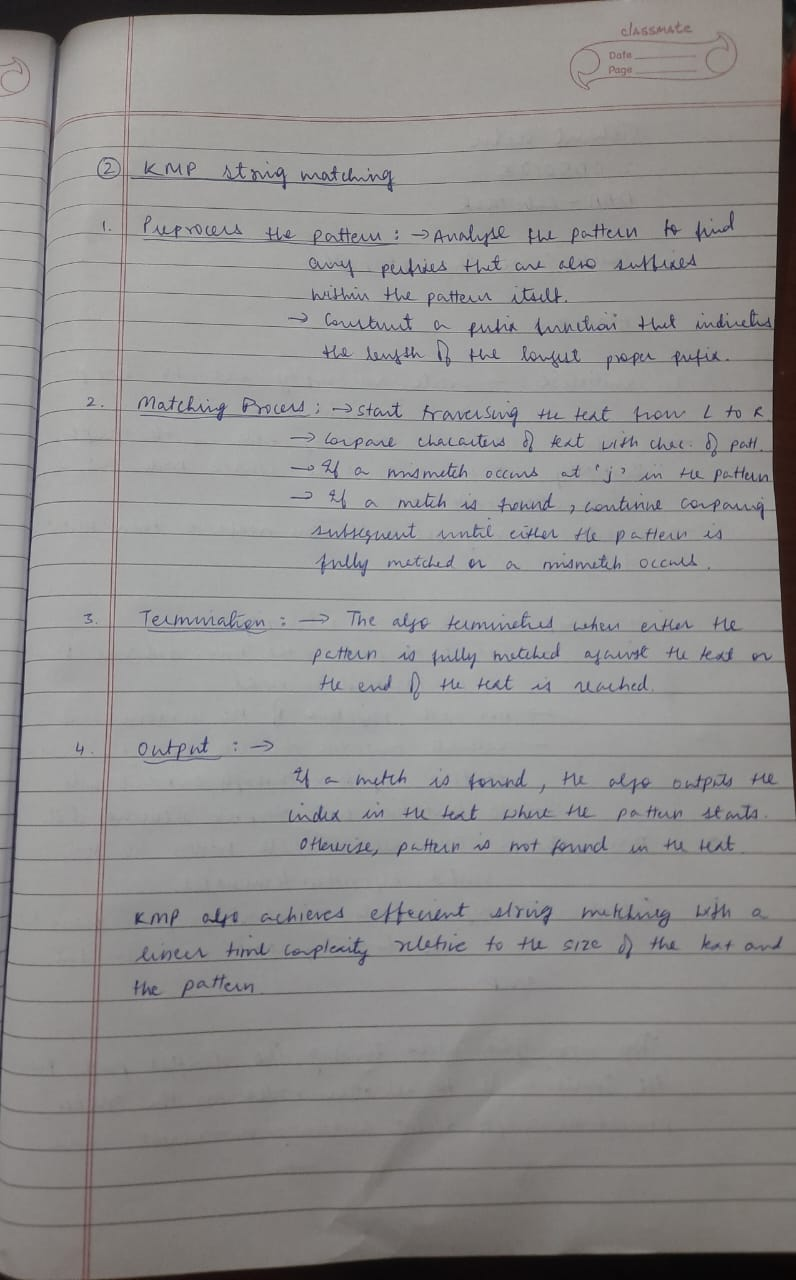 classmate
Date
Page
② KMP string matching
1. Preprocess the pattern : → Analyse the pattern to find
any prefixes that are also suffixes
within the pattern itself.
→ Construct a prefix function that indicates
the length of the longest proper prefix.
2. Matching Process : → start traversing the text from L to R
→ Compare characters of text with char. of patt.
→ If a mismatch occurs at 'j' in the pattern
→ If a match is found, continue comparing
subsequent until either the pattern is
fully matched or a mismatch occurs.
3. Termination : → The algo terminates when either the
pattern is fully matched against the text or
the end of the text is reached.
4. Output : →
If a match is found, the algo outputs the
index in the text where the pattern starts.
Otherwise, pattern is not found in the text
KMP algo achieves effecient string matching with a
linear time complexity relative to the size of the text and
the pattern